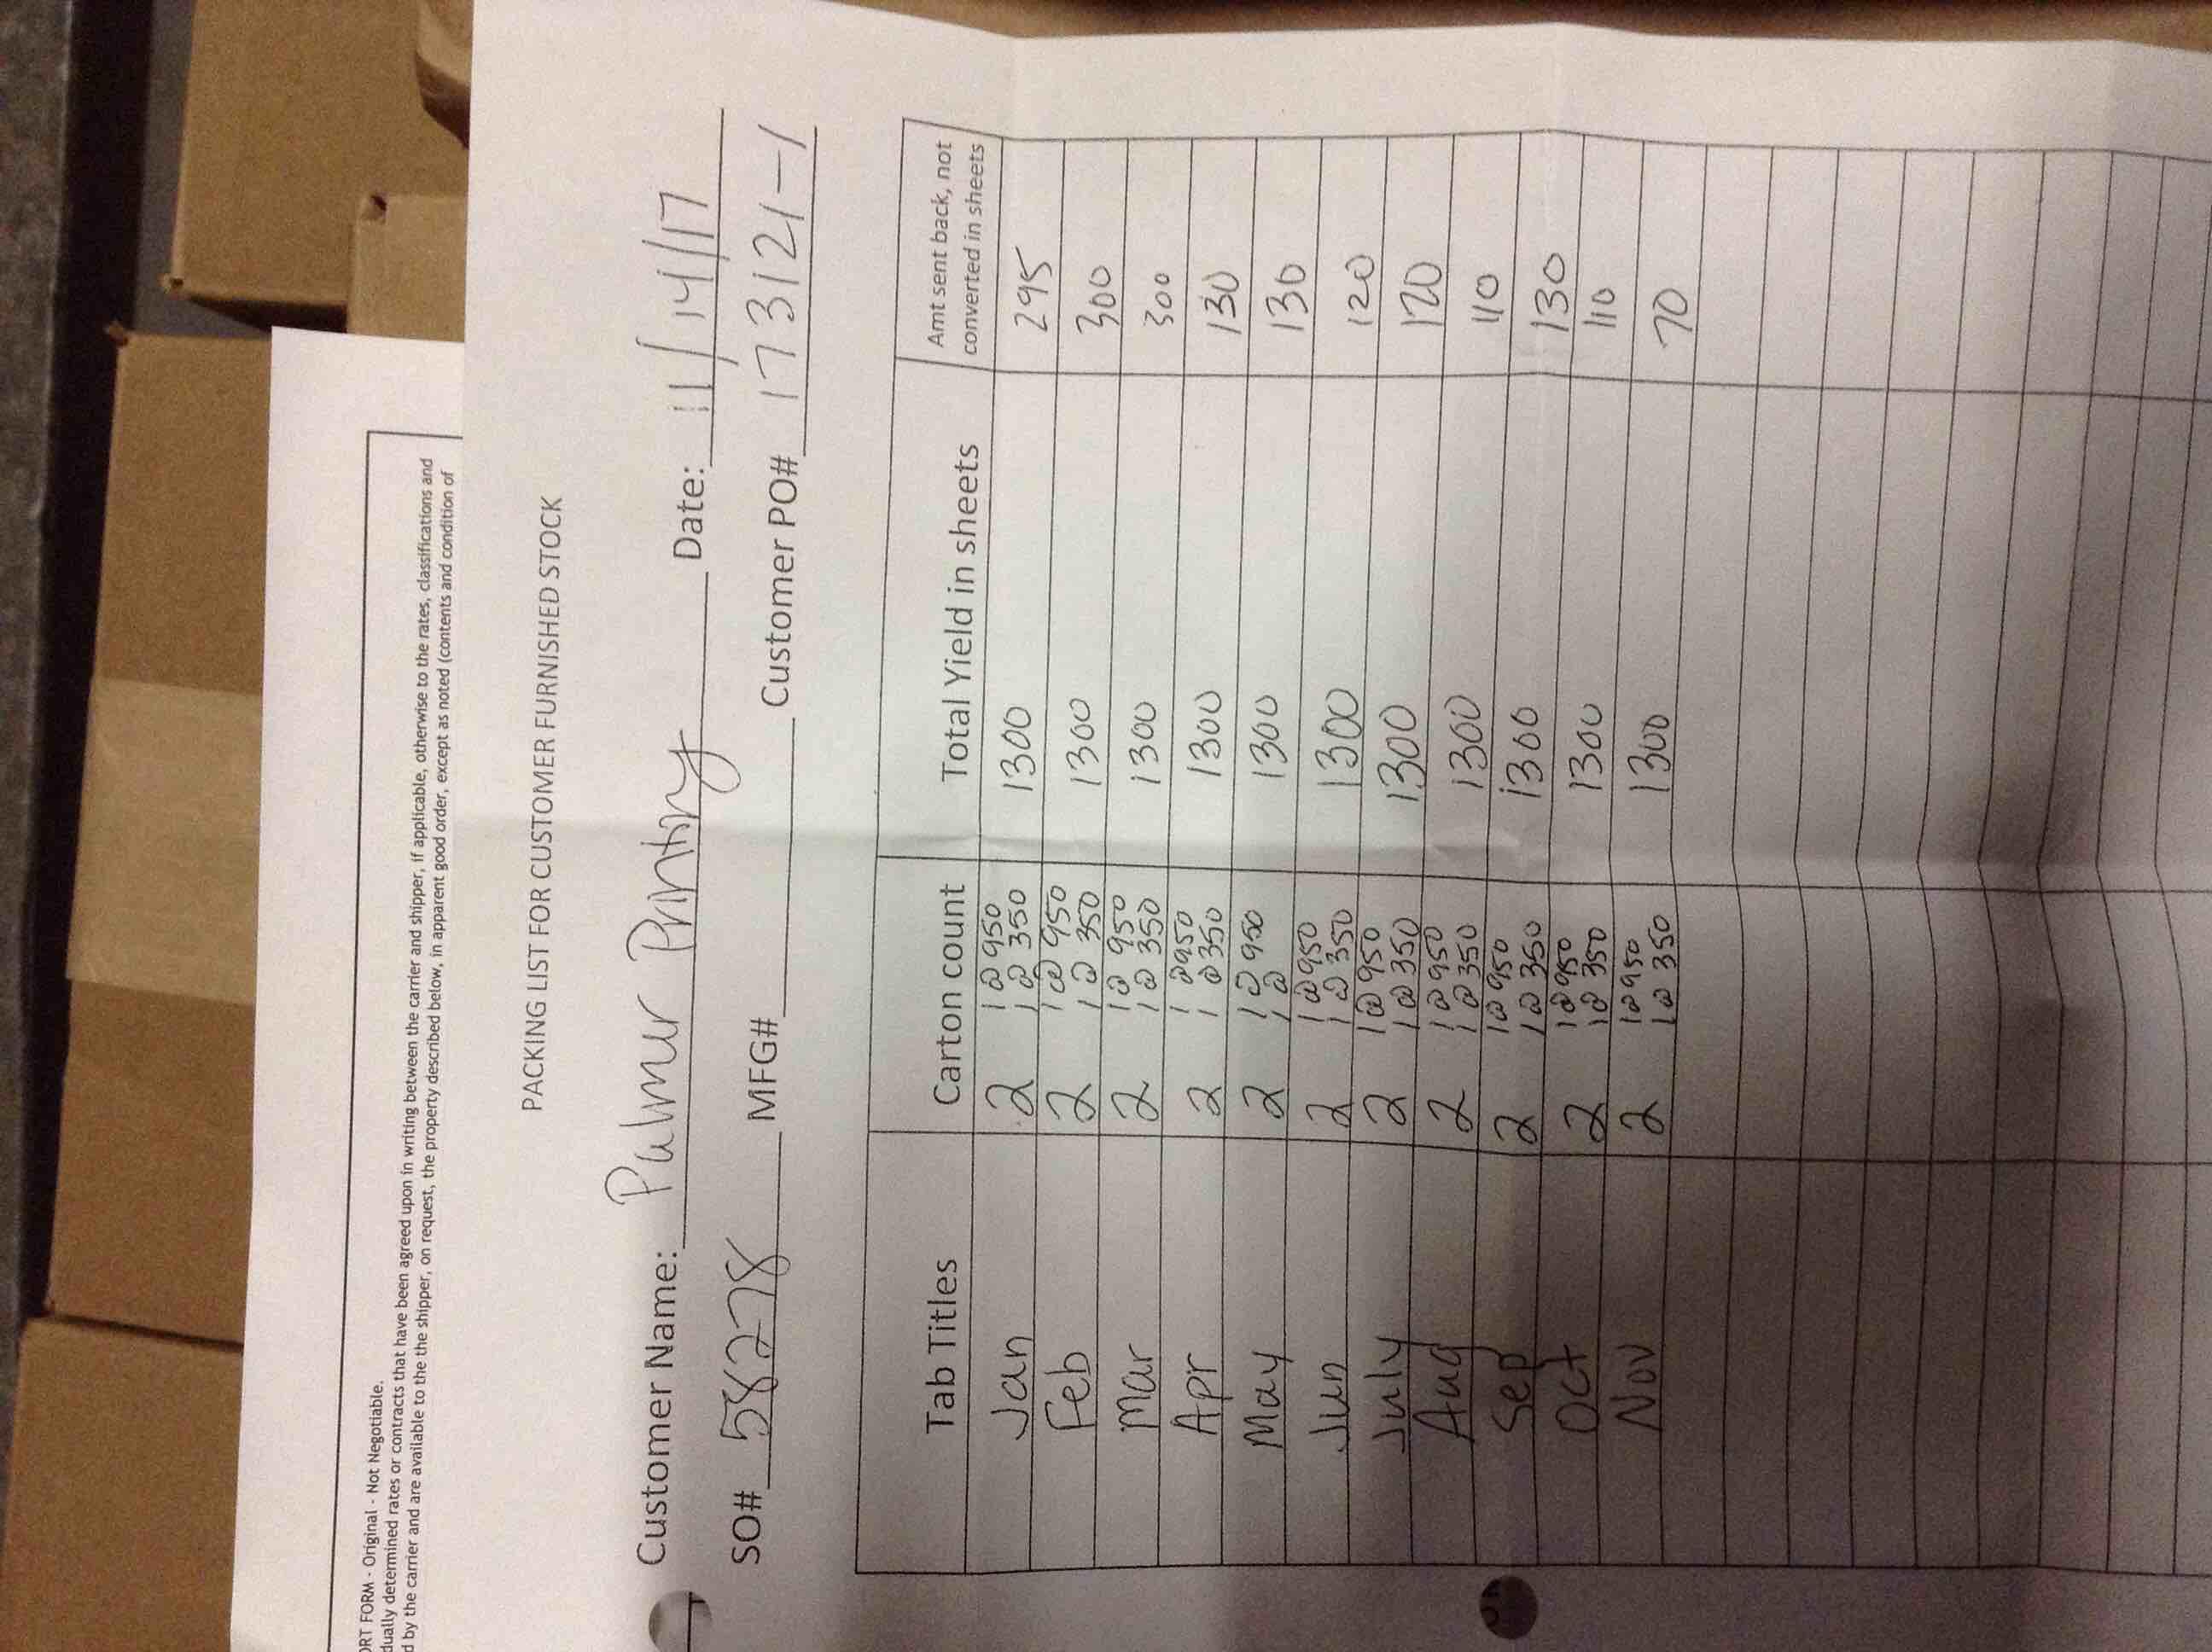 ORT FORM - Original - Not Negotiable.
dually determined rates or contracts that have been agreed upon in writing between the carrier and shipper, if applicable, otherwise to the rates, classifications and
d by the carrier and are available to the the shipper, on request, the property described below, in apparent good order, except as noted (contents and condition of
PACKING LIST FOR CUSTOMER FURNISHED STOCK
Customer Name: Palmer Printing Date: 11/14/17
SO# 58278 MFG# Customer PO# 173121-1
Tab Titles Carton count Total Yield in sheets Amt sent back, not converted in sheets
Jan 2 1@950 1@350 1300 295
Feb 2 1@950 1@350 1300 300
Mar 2 1@950 1@350 1300 300
Apr 2 1@950 1@350 1300 130
May 2 1@950 1@ 1300 130
Jun 2 1@950 1@350 1300 120
July 2 1@950 1@350 1300 120
Aug 2 1@950 1@350 1300 110
Sep 2 1@950 1@350 1300 130
Oct 2 1@950 1@350 1300 110
Nov 2 1@950 1@350 1300 70